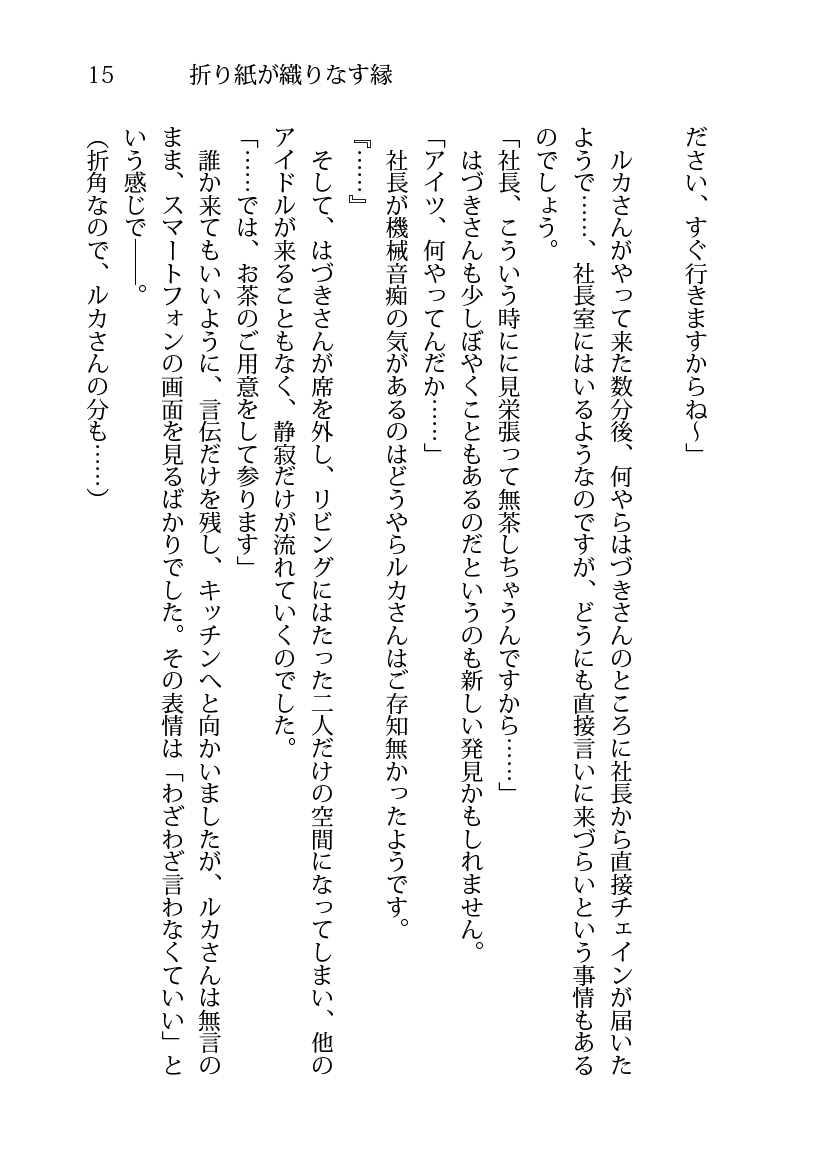 15　折り紙が織りなす縁
ださい、すぐ行きますからね～」
　ルカさんがやって来た数分後、何やらはづきさんのところに社長から直接チェインが届いた
ようで……、社長室にはいるようなのですが、どうにも直接言いに来づらいという事情もある
のでしょう。
「社長、こういう時にに見栄張って無茶しちゃうんですから……」
　はづきさんも少しぼやくこともあるのだというのも新しい発見かもしれません。
「アイツ、何やってんだか……」
　社長が機械音痴の気があるのはどうやらルカさんはご存知無かったようです。
『……』
　そして、はづきさんが席を外し、リビングにはたった二人だけの空間になってしまい、他の
アイドルが来ることもなく、静寂だけが流れていくのでした。
「……では、お茶のご用意をして参ります」
　誰か来てもいいように、言伝だけを残し、キッチンへと向かいましたが、ルカさんは無言の
まま、スマートフォンの画面を見るばかりでした。その表情は「わざわざ言わなくていい」と
いう感じで――。
（折角なので、ルカさんの分も……）